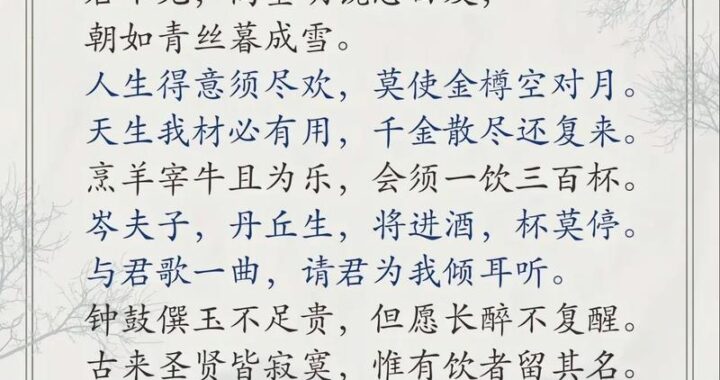 朝如青丝暮成雪。
人生得意须尽欢，莫使金樽空对月。
天生我材必有用，千金散尽还复来。
烹羊宰牛且为乐，会须一饮三百杯。
岑夫子，丹丘生，将进酒，杯莫停。
与君歌一曲，请君为我倾耳听。
钟鼓馔玉不足贵，但愿长醉不复醒。
古来圣贤皆寂寞，惟有饮者留其名。